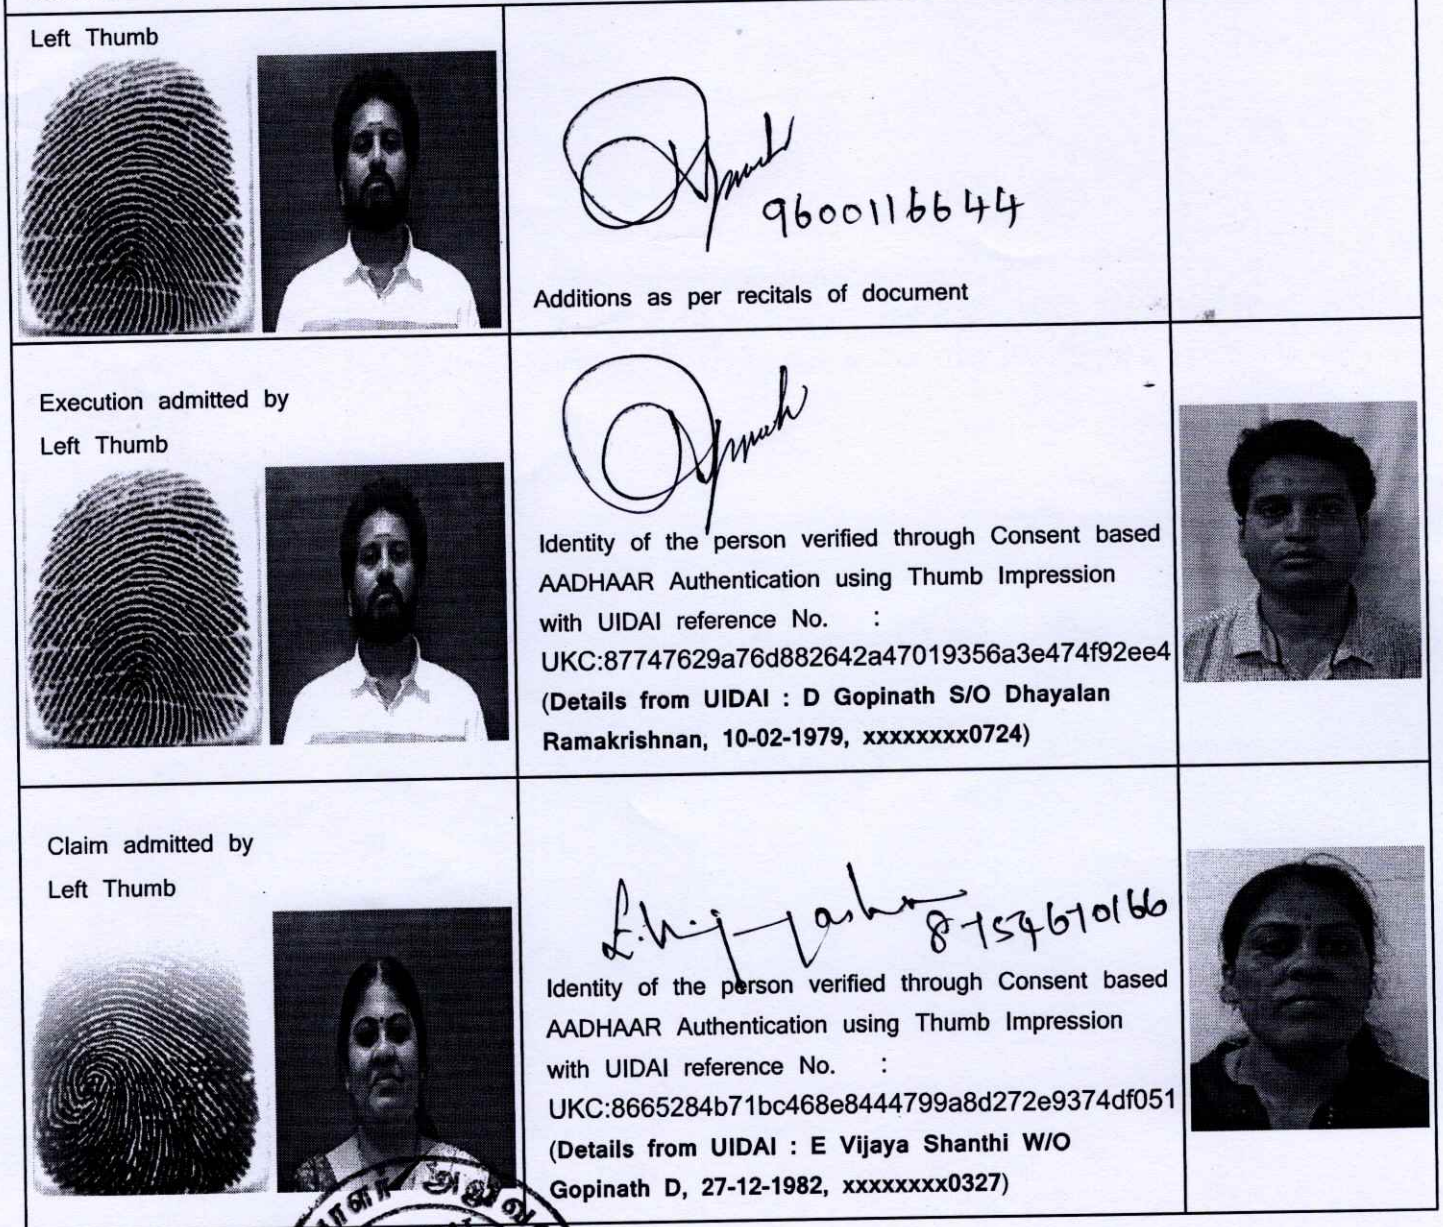 Left Thumb
9600116644
Additions as per recitals of document
Execution admitted by
Left Thumb
Identity of the person verified through Consent based
AADHAAR Authentication using Thumb Impression
with UIDAI reference No. :
UKC:87747629a76d882642a47019356a3e474f92ee4
(Details from UIDAI : D Gopinath S/O Dhayalan
Ramakrishnan, 10-02-1979, xxxxxxxx0724)
Claim admitted by
Left Thumb
Identity of the person verified through Consent based
AADHAAR Authentication using Thumb Impression
with UIDAI reference No. :
UKC:8665284b71bc468e8444799a8d272e9374df051
(Details from UIDAI : E Vijaya Shanthi W/O
Gopinath D, 27-12-1982, xxxxxxxx0327)